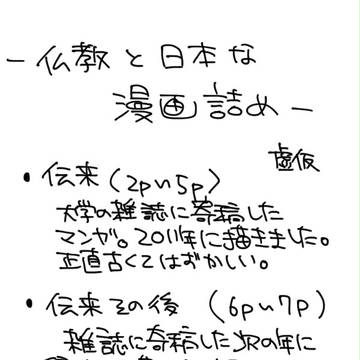 －仏教と日本な
漫画詰め－
虚仮
・伝来(2p〜5p)
大学の雑誌に寄稿した
マンガ。2011年に描きました。
正直古くてはずかしい。
・伝来その後(6p〜7p)
雑誌に寄稿した次の年に